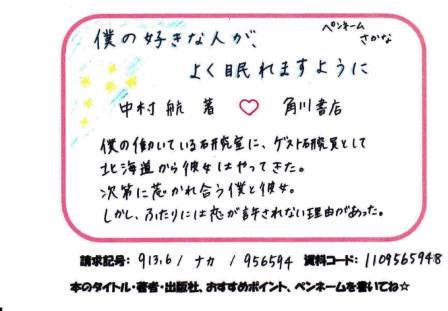 僕の好きな人が、
よく眠れますように
ペンネーム
さかな
中村 航 著 ♡ 角川書店
僕の働いている研究室に、ゲスト研究員として
北海道から彼女はやってきた。
次第に惹かれ合う僕と彼女。
しかし、ふたりには恋が許されない理由があった。
請求記号: 913.6 / ナカ / 956594 資料コード: 1109565948
本のタイトル・著者・出版社、おすすめポイント、ペンネームを書いてね☆